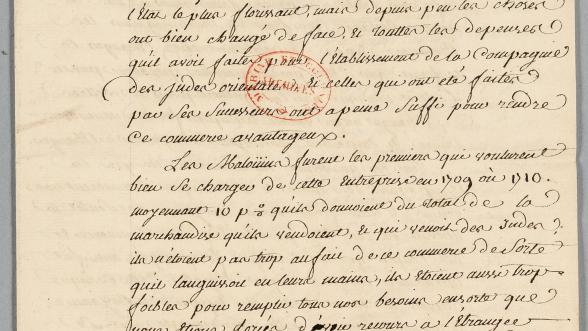 l'Etat le plus florissant, mais depuis peu les choses
ont bien changé de face, Et touttes les depenses
qu'il avoit faites pour l'Etablissement de la Compagnie
des jndes orientales Et celles qui ont eté faites
par ses Successeurs ont a peine Suffi pour rendre
Ce commerce avantageux.
Les Maloüins furent les premiers qui voulurent
bien se charger de cette Entreprise en 1709 où 1710.
moyennant 10 p% qu'ils donnoient du total de la
marchandise qu'ils vendoient, & qui venoit des Jndes;
ils n'etoient pas trop au fait de ce commerce de Sorte
qu'il languissoit en leurs mains, ils Etoient aussi trop
foibles pour remplir tous nos besoins ensorte que
nous Etions forcés d'avoir recours a l'Etranger